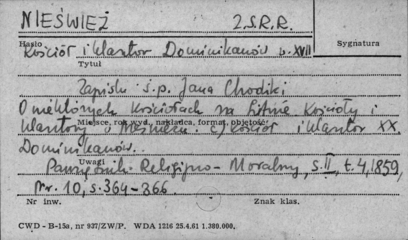 NIEŚWIEŻ Z.S.R.R.
Hasło Sygnatura
Kościół i klasztor Dominikanów w. XVII
Tytuł
Zapiski ś.p. Jana Chodźki
O niektórych kościołach na Litwie Kościoły i
Miejsce, rok wyd., nakładca, format, objętość
klasztory w Nieświeżu. c) kościół i klasztor XX.
Dominikanów.
Uwagi
Pamiętnik Religijno-Moralny, s. II, t. 4, 1859,
Nr. 10, s. 364-366.
Nr inw. Znak klas.
CWD - B-15a, nr 937/ZW/P. WDA 1216 25.4.61 1.380.000.